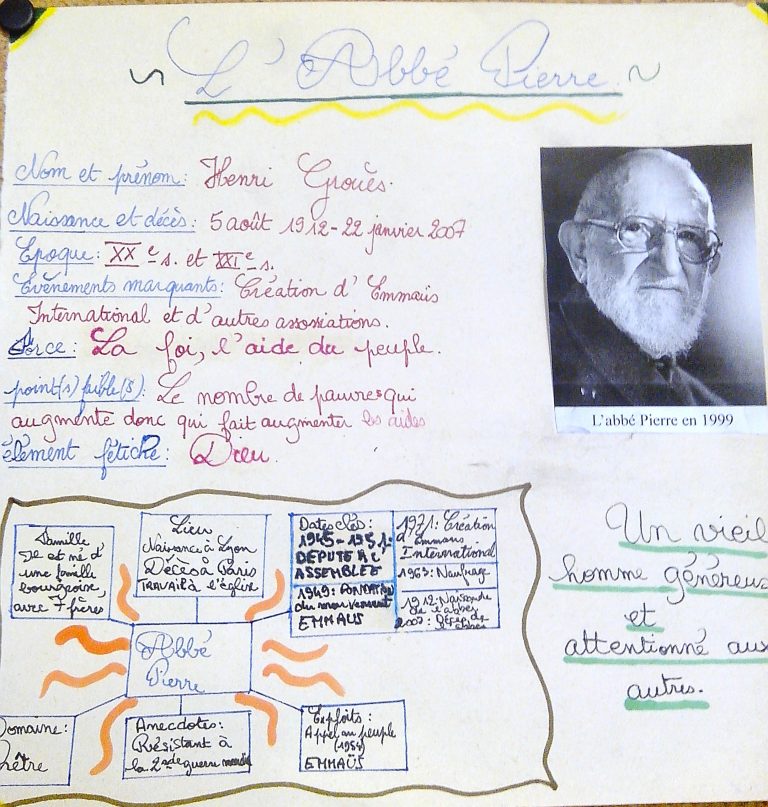 ~ L'Abbé Pierre ~
Nom et prénom: Henri Groues.
Naissance et décès: 5 août 1912 - 22 janvier 2007
Epoque: XXe s. et XXIe s.
Evènements marquants: Création d'Emmaüs
International et d'autres associations.
Force: La foi, l'aide du peuple.
point(s) faible(s): Le nombre de pauvres qui
augmente donc qui fait augmenter les aides
élément fétiche: Dieu.
L'abbé Pierre en 1999
Un vieil
homme généreux
et
attentionné aux
autres.
Famille
Il est né d'
une famille
bourgeoise,
avec 7 frères
Lieu
Naissance à Lyon
Décès à Paris
Travail à l'église
Dates clés:
1945-1951:
DEPUTE A L'
ASSEMBLEE
1949: FONDATION
du mouvement
EMMAUS
1971: Création
d'Emmaus
International
1963: Naufrage
1912: Naissance
de l'abbé
2007: Décès de
Abbé
Pierre
Domaine:
Prêtre
Anecdotes:
Résistant à
la 2nde guerre
Exploits:
Appel au peuple
(1954)
EMMAÜS